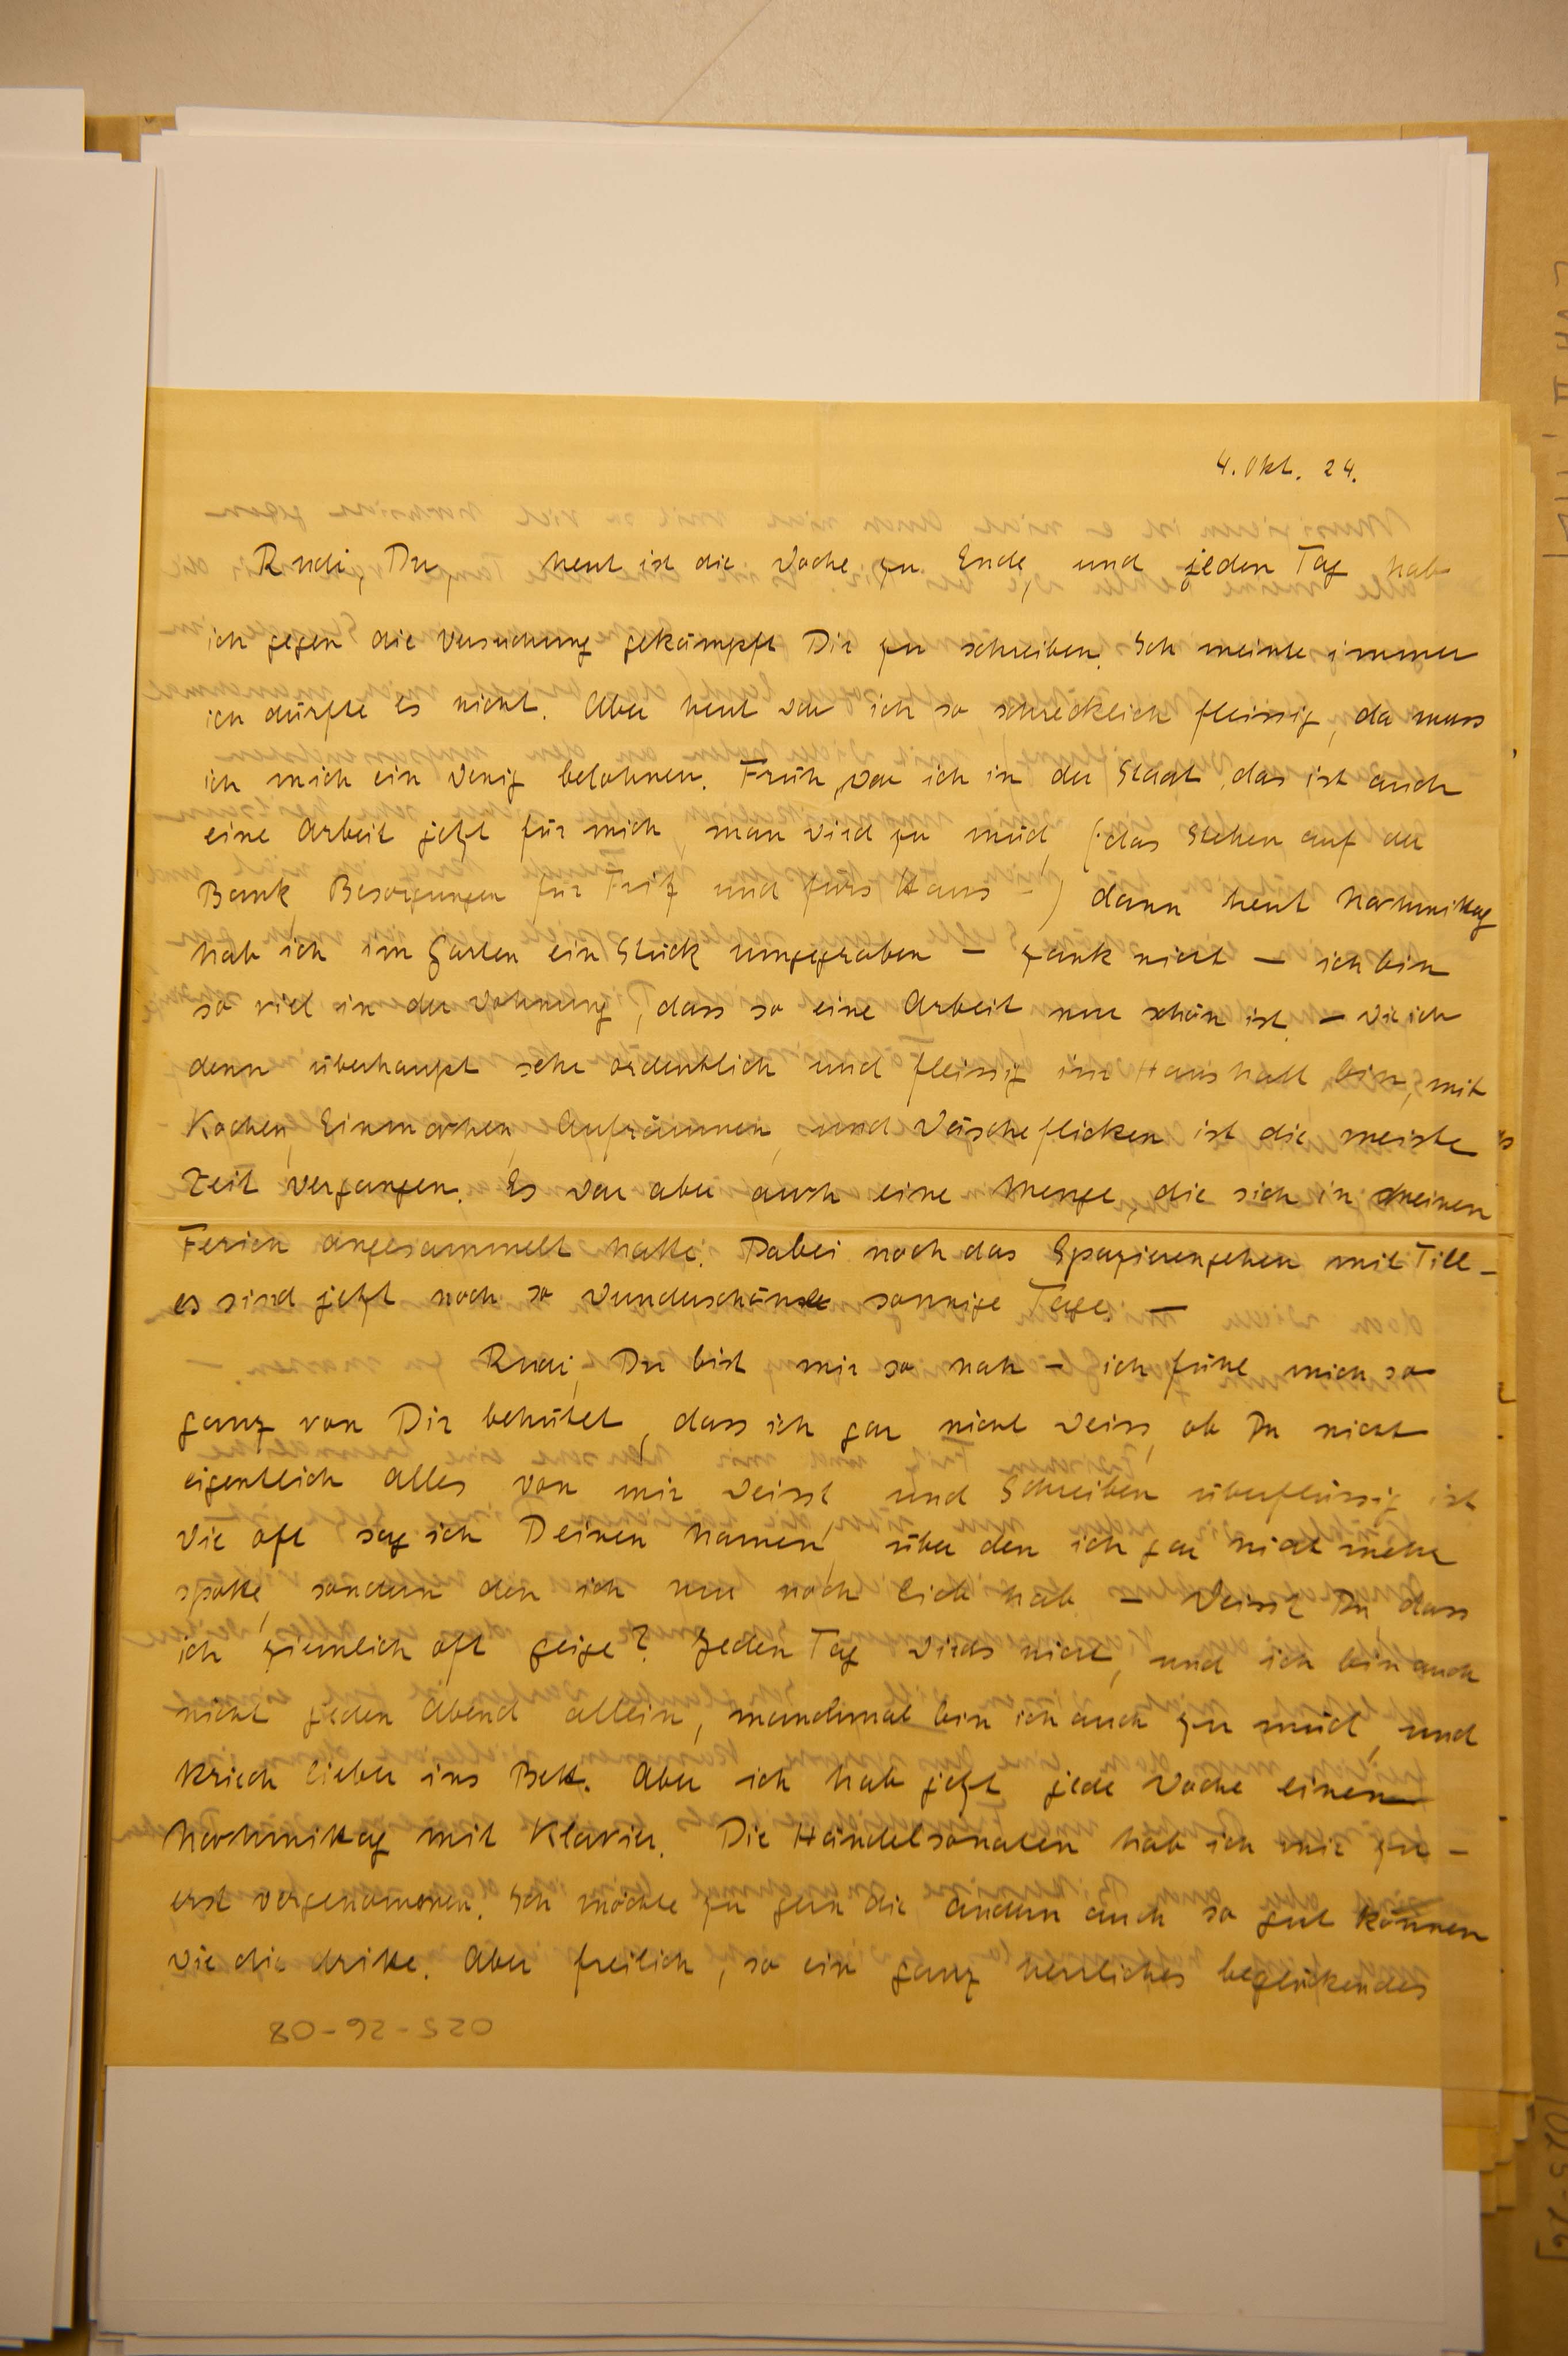 4. Okt. 24.
Rudi, Du, heut ist die Woche zu Ende, und jeden Tag hab
ich gegen die Versuchung gekämpft Dir zu schreiben. Ich meinte immer
ich dürfte es nicht. Aber heut war ich so schrecklich fleissig, da muss
ich mich ein wenig belohnen. Früh war ich in der Stadt, das ist auch
eine Arbeit jetzt für mich, man wird zu müd (das Stehen auf der
Bank, Besorgungen für Fritz und fürs Haus –) dann heut Nachmittag
hab ich im Garten ein Stück umgegraben – zank nicht – ich bin
so viel in der Wohnung, dass so eine Arbeit nur schön ist – wie ich
denn überhaupt sehr ordentlich und fleissig im Haushalt bin, mit
Kochen, Einmachen, Aufräumen, und Wäscheflicken ist die meiste
Zeit vergangen. Es war aber auch eine Menge, die sich in meinen
Ferien angesammelt hatte. Dabei noch das Spazierengehen mit Till –
es sind jetzt noch so wunderschöne sonnige Tage. –
Rudi, Du bist mir so nah – ich fühl mich so
ganz von Dir behütet, dass ich gar nicht weiss, ob Du nicht
eigentlich alles von mir weisst und Schreiben überflüssig ist
Wie oft sag ich Deinen Namen, über den ich gar nicht mehr
spotte, sondern den ich nur noch lieb hab – Weisst Du, dass
ich ziemlich oft geige? Jeden Tag wirds nicht, und ich bin auch
nicht jeden Abend allein, manchmal bin ich auch zu müd, und
kriech lieber ins Bett. Aber ich hab jetzt jede Woche einen
Nachmittag mit Klavier. Die Händelsonaten hab ich mir zu-
erst vorgenommen. Ich möchte zu gern die andern auch so gut können
wie die dritte. Aber freilich, so ein ganz herrliches beglückendes
025-26-08